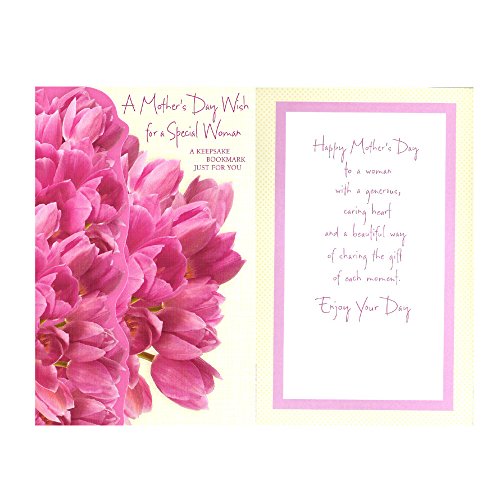 A Mother's Day Wish
for a Special Woman
A KEEPSAKE
BOOKMARK
JUST FOR YOU
Happy Mother's Day
to a woman
with a generous,
caring heart
and a beautiful way
of sharing the gift
of each moment.
Enjoy Your Day